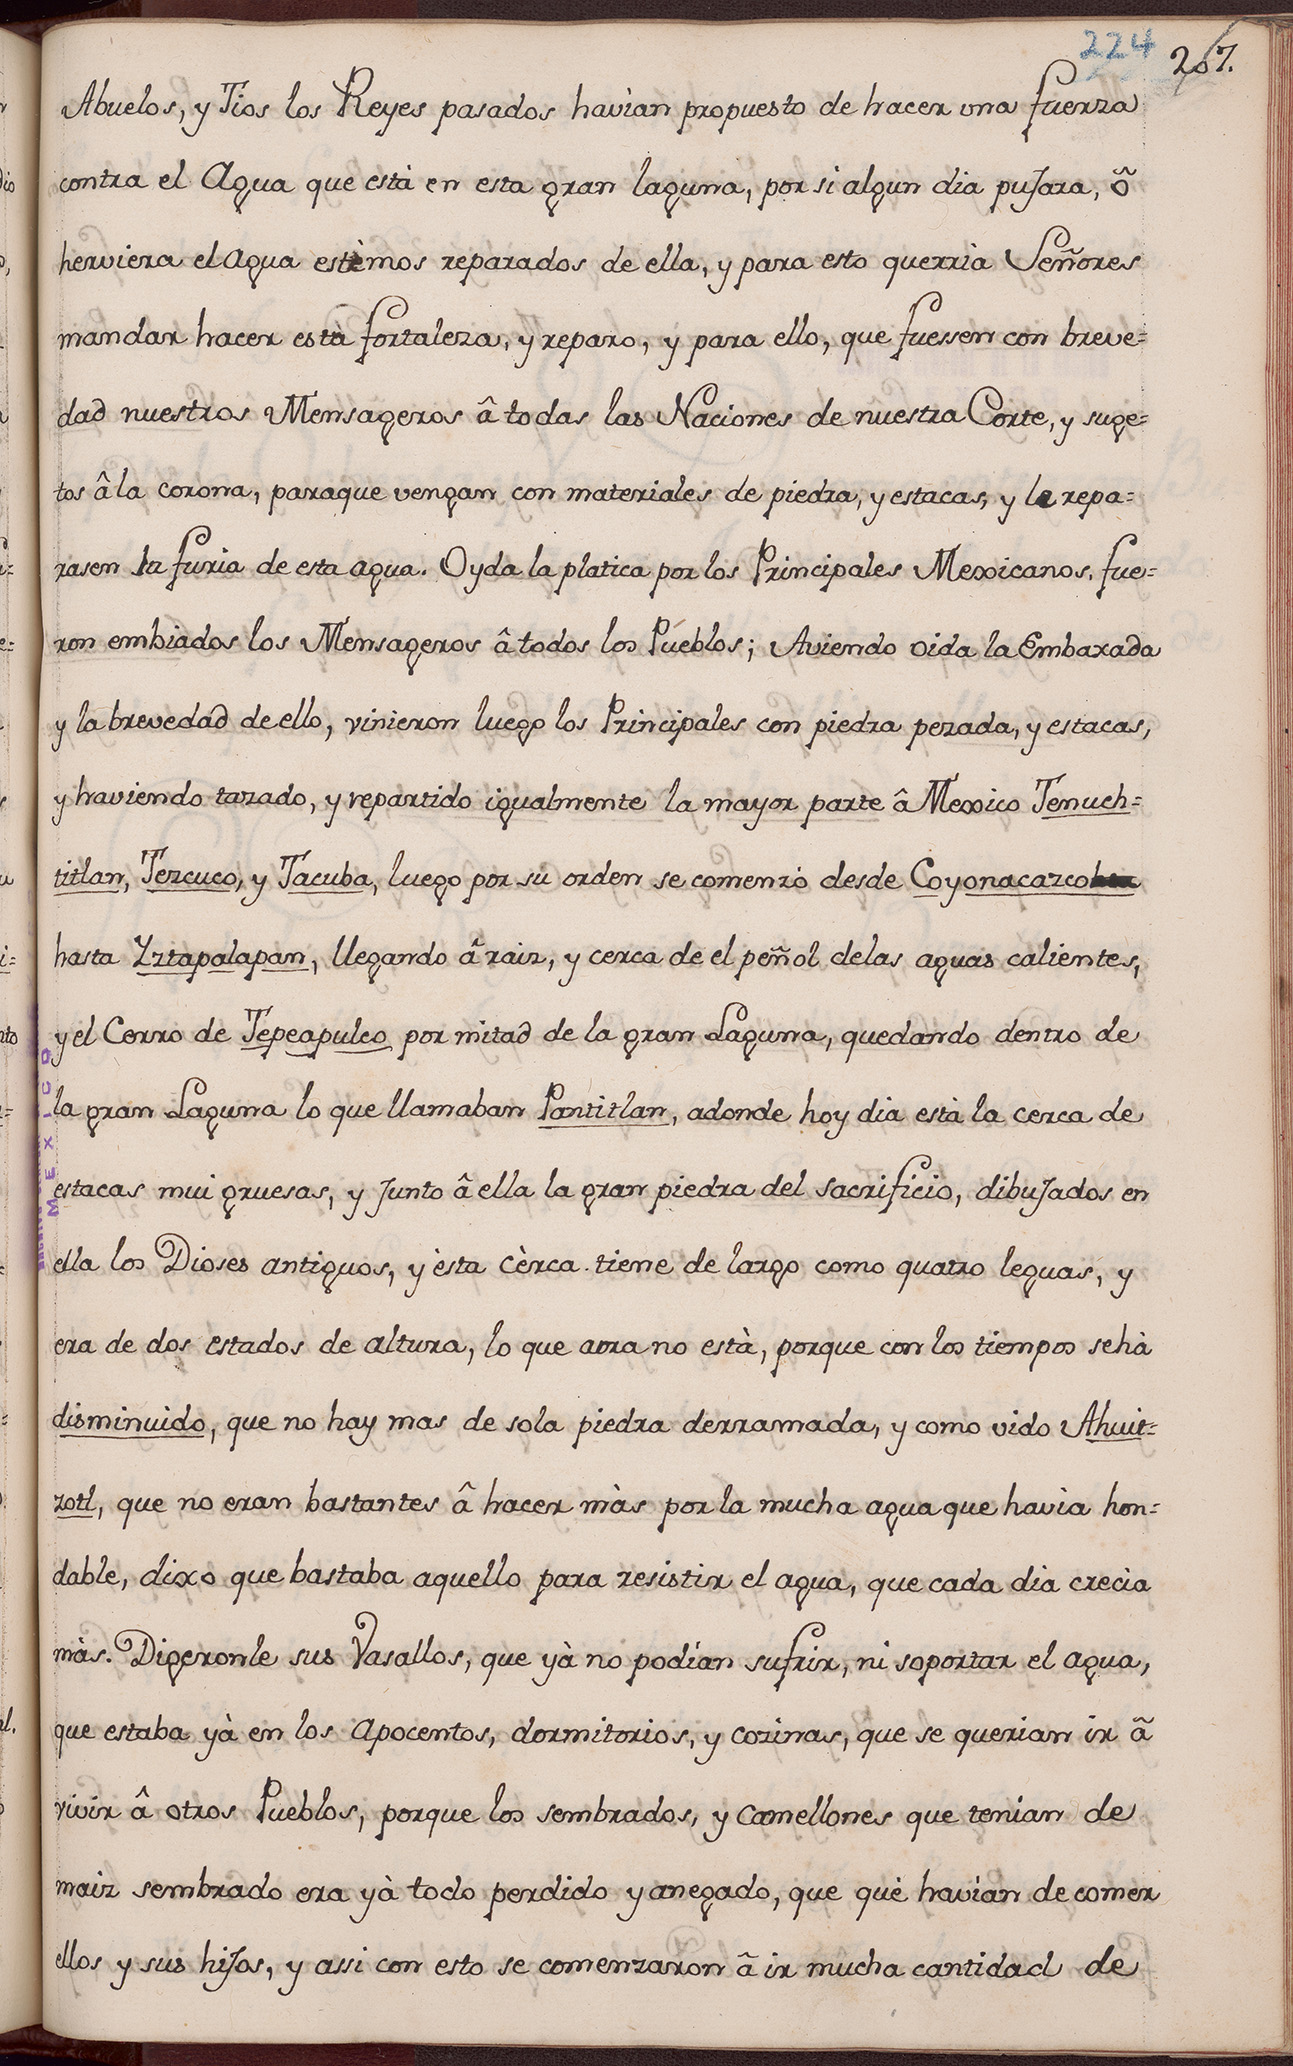 224 267.
Abuelos, y Tios los Reyes pasados havian propuesto de hacer una fuerza
contra el Agua que està en esta gran laguna, por si algun dia puJara, õ
herviera el agua estèmos reparados de ella, y para esto querria Señores
mandar hacer està fortaleza, y reparo, y para ello, que fuessen con breve=
dad nuestros Mensageros â todas las Naciones de nuestra Corte, y suge=
tos â la corona, paraque vengan con materiales de piedra, y estacas, y le repa=
rasen la furia de esta agua. Oyda la platica por los Principales Mexicanos, fue=
ron embiados los Mensageros â todos los Pueblos; Aviendo oida la Embaxada
y la brevedad de ello, vinieron luego los Principales con piedra pezada, y estacas,
y haviendo tazado, y repartido igualmente la mayor parte â Mexico Tenuch=
titlan, Tezcuco, y Tacuba, luego por su orden se comenzó desde Coyonacazco
hasta Yztapalapan, llegando â raiz, y cerca de el peñol delas aguas calientes,
y el Cerro de Tepeapulco por mitad de la gran Laguna, quedando dentro de
la gran Laguna lo que llamaban Pantitlan, adonde hoy dia està la cerca de
estacas mui gruesas, y Junto â ella la gran piedra del sacrificio, dibuJados en
ella los Dioses antiguos, y èsta cèrca tiene de largo como quatro leguas, y
era de dos estados de altura, lo que aora no està, porque con los tiempos sehà
disminuido, que no hay mas de sola piedra derramada, y como vido Ahuit=
zotl, que no eran bastantes â hacer màs por la mucha agua que havia hon=
dable, dixo que bastaba aquello para resistir el agua, que cada dia crecia
màs. Digeronle sus Vasallos, que yà no podian sufrir, ni soportar el agua,
que estaba yà en los apocentos, dormitorios, y cozinas, que se querian ir ã
vivir â otros Pueblos, porque los sembrados, y camellones que tenian de
maiz sembrado era yà todo perdido y anegado, que què havian de comer
ellos y sus hiJos, y assi con esto se comenzaron ã ir mucha cantidad de
MEXICO